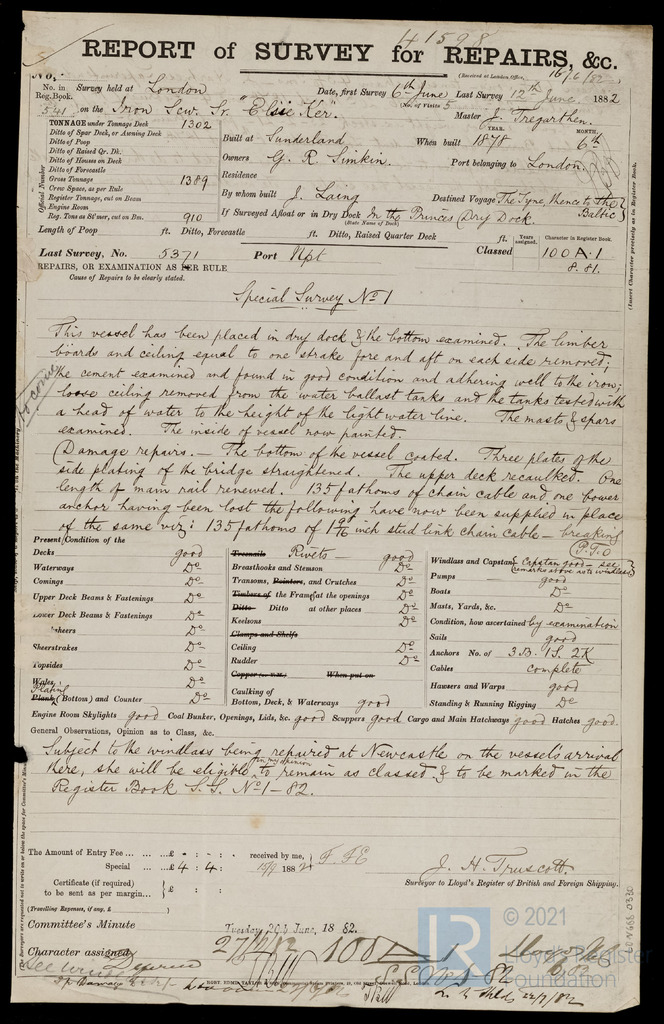 41598
REPORT of SURVEY for REPAIRS, &c.
(Received at London Office, 16/6/82)
No. in Reg. Book. Survey held at London Date, first Survey 6th June Last Survey 12th June 1882
541 on the Iron Scw. Sr. "Elsie Ker". (No. of Visits 5 Master J. Tregarthen
TONNAGE under Tonnage Deck 1302
Ditto of Spar Deck, or Awning Deck
Ditto of Poop
Ditto of Raised Qr. Dk.
Ditto of Houses on Deck
Ditto of Forecastle
Gross Tonnage 1389
Crew Space, as per Rule
Register Tonnage, cut on Beam
Engine Room
Reg. Tons as St'mer, cut on Bm. 910
Official Number
Built at Sunderland When built YEAR. 1878 MONTH. 6th
Owners G. R. Simkin. Port belonging to London
Residence
By whom built J. Laing Destined Voyage The Tyne, thence to the Baltic
If Surveyed Afloat or in Dry Dock In the Princes Dry Dock.
(State Name of Dock)
Length of Poop ft. Ditto, Forecastle ft. Ditto, Raised Quarter Deck ft.
Last Survey, No. 5371 Port Npt Classed Years assigned. Character in Register Book. 100 A.1 8.81.
(Insert Character precisely as in Register Book.
REPAIRS, OR EXAMINATION AS PER RULE
Cause of Repairs to be clearly stated.
Special Survey No 1
This vessel has been placed in dry dock & the bottom examined. The limber
boards and ceiling equal to one strake fore and aft on each side removed;
the cement examined and found in good condition and adhering well to the iron;
loose ceiling removed from the water ballast tanks and the tanks tested with
a head of water to the height of the light water line. The masts & spars
examined. The inside of vessel now painted.
Damage repairs. — The bottom of the vessel coated. Three plates of the
side plating of the bridge straightened. The upper deck recaulked. One
length of main rail renewed. 135 fathoms of chain cable and one bower
anchor having been lost the following have now been supplied in place
of the same viz: 135 fathoms of 1 9/16 inch stud link chain cable — breaking
P.T.O
Present Condition of the
Decks good
Waterways Do
Comings Do
Upper Deck Beams & Fastenings Do
Lower Deck Beams & Fastenings Do
sheers Do
Sheerstrakes Do
Topsides Do
Wales, Do
Plank Plating (Bottom) and Counter Do
Treenails Rivets good
Breasthooks and Stemson Do
Transoms, Pointers, and Crutches Do
Timbers of the Frame at the openings Do
Ditto Ditto at other places Do
Keelsons Do
Clamps and Shelfs
Ceiling Do
Rudder Do
Copper When put on
Caulking of Bottom, Deck, & Waterways good
Windlass and Capstan Capstan good — see remarks above as to windlass
Pumps good
Boats Do
Masts, Yards, &c. Do
Condition, how ascertained by examination
Sails good
Anchors No. of 3B. 1S. 2K
Cables complete
Hawsers and Warps good
Standing & Running Rigging Do
Engine Room Skylights good Coal Bunker, Openings, Lids, &c. good Scuppers good Cargo and Main Hatchways good Hatches good.
General Observations, Opinion as to Class, &c.
Subject to the windlass being repaired at Newcastle on the vessel's arrival
there, she will be eligible in my opinion to remain as classed & to be marked in the
Register Book S.S. No 1 – 82.
The Amount of Entry Fee ... £ : :
Special ... £ 4 : 4 : received by me, 1882
Certificate (if required) to be sent as per margin... £ : :
(Travelling Expenses, if any, £ )
J. H. Truscott.
Surveyor to Lloyd's Register of British and Foreign Shipping.
Committee's Minute Tuesday 20th June, 1882.
Character assigned 100 A 1
S.S. No 1 82
LR © 2021
Lloyd's Register
Foundation